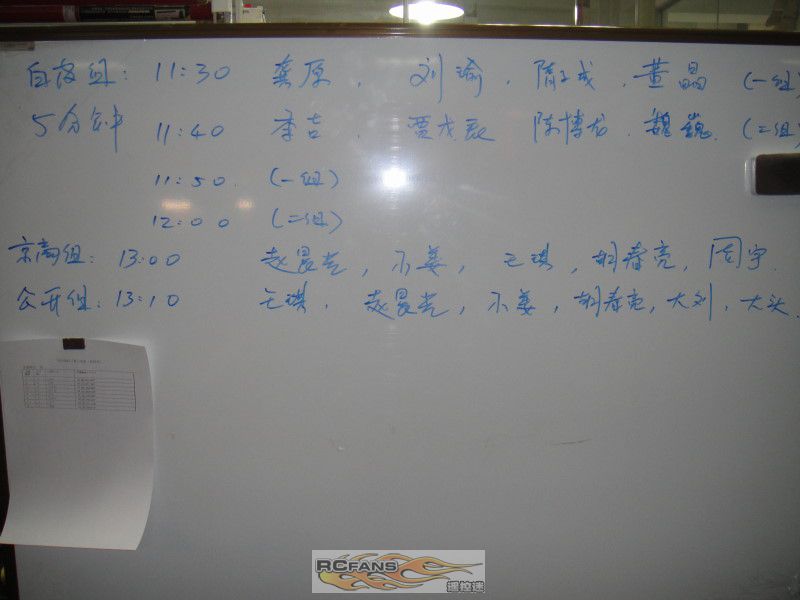 组: 11:30 龚原, 刘瑜, 董晶 (一组)
5分钟 11:40 季吉, 贾戊辰 陈博龙. 魏巍. (二组)
11:50. (一组)
12:00 (二组)
京商组: 13:00 赵晨光, 不姜, 王琪, 胡春亮, 周宇.
公开组: 13:10 王琪. 赵晨光, 不姜, 胡春亮, 大刘, 大头.
RCFANS
遥控迷